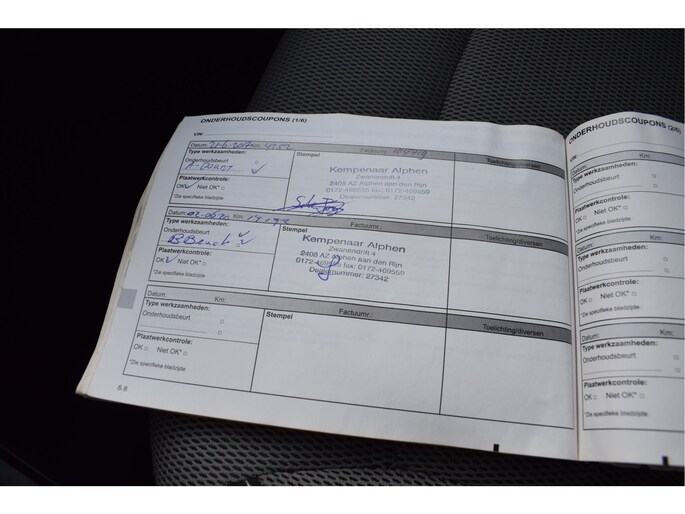 ONDERHOUDSCOUPONS (1/6)
VIN:
Datum: Km: Factuurnr.:
Type werkzaamheden: Stempel Toelichting/diversen
Onderhoudsbeurt
Kempenaar Alphen
Zwanendrift 4
2408 AZ Alphen aan den Rijn
0172-469555 fax: 0172-469550
Dealernummer: 27342
Plaatwerkcontrole:
OK Niet OK*
*Zie specifieke bladzijde
Datum: Km: Factuurnr.:
Type werkzaamheden: Stempel Toelichting/diversen
Onderhoudsbeurt
B Beurt
Kempenaar Alphen
Zwanendrift 4
2408 AZ Alphen aan den Rijn
fax: 0172-469550
Dealernummer: 27342
Plaatwerkcontrole:
OK Niet OK*
*Zie specifieke bladzijde
Datum: Km: Factuurnr.:
Type werkzaamheden: Stempel Toelichting/diversen
Onderhoudsbeurt
Plaatwerkcontrole:
OK Niet OK*
*Zie specifieke bladzijde
6.8
ONDERHOUDSCOUPONS (2/6)
VIN:
Datum: Km:
Type werkzaamheden:
Onderhoudsbeurt
Plaatwerkcontrole:
OK Niet OK*
*Zie specifieke bladzijde
Datum: Km:
Type werkzaamheden:
Onderhoudsbeurt
Plaatwerkcontrole:
OK Niet OK*
*Zie specifieke bladzijde
Datum: Km:
Type werkzaamheden:
Onderhoudsbeurt
Plaatwerkcontrole:
OK Niet OK*
*Zie specifieke bladzijde